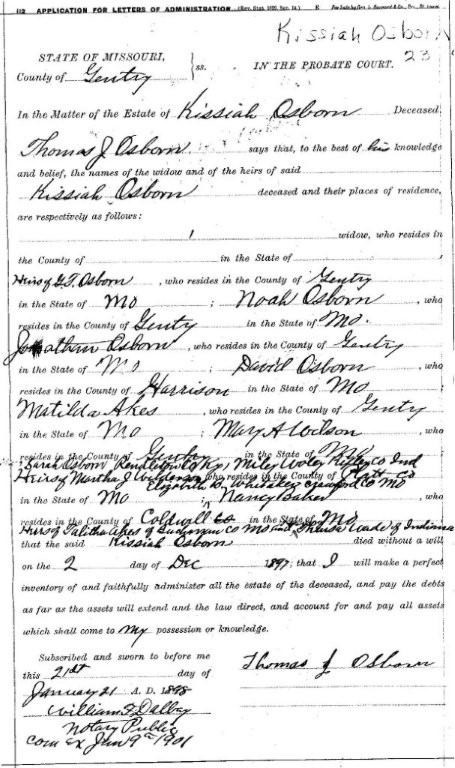 112 APPLICATION FOR LETTERS OF ADMINISTRATION. (Rev. Stat. 1889, Sec. 14.)
Kissiah Osborn
23
STATE OF MISSOURI, ss. IN THE PROBATE COURT.
County of Gentry
In the Matter of the Estate of Kissiah Osborn Deceased;
Thomas J. Osborn says that, to the best of his knowledge
and belief, the names of the widow and of the heirs of said
Kissiah Osborn deceased and their places of residence,
are respectively as follows:
widow, who resides in
the County of in the State of ,
Heirs of G.T. Osborn , who resides in the County of Gentry
in the State of Mo ; Noah Osborn , who
resides in the County of Gentry in the State of Mo.
Jonathan Osborn , who resides in the County of Gentry
in the State of Mo ; David Osborn , who
resides in the County of Harrison in the State of Mo ;
Matilda Akes , who resides in the County of Gentry
in the State of Mo ; Mary A Wilson , who
resides in the County of Gentry in the State of Mo
Sarah Osborn Pendleton Co Ky, Miley Ripley co Ind
Heirs of Martha J who resides in the County of Platt Co
Elizabeth Crawford Co Mo
in the State of Mo ; Nancy Baker , who
resides in the County of Coldwell Co in the State of Mo
Heirs of Talitha Akes of Co Mo and Wade of Indiana
that the said Kissiah Osborn died without a will
on the 2 day of Dec 1897; that I will make a perfect
inventory of and faithfully administer all the estate of the deceased, and pay the debts
as far as the assets will extend and the law direct, and account for and pay all assets
which shall come to my possession or knowledge.
Subscribed and sworn to before me Thomas J Osborn
this 21st day of
January 21 A. D. 1898
William F Dalbey
Notary Public
Com Ex Jun 9th 1901